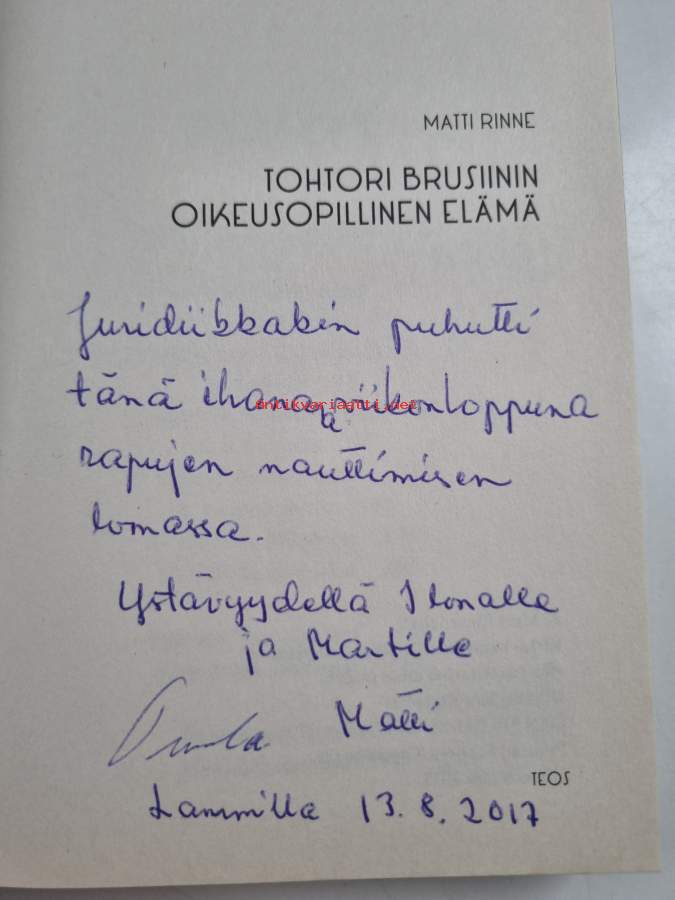 MATTI RINNE
TOHTORI BRUSIININ
OIKEUSOPILLINEN ELÄMÄ
Juridiikkakin puhutti
tänä ihanana viikonloppuna
antikvariaatti.net
rapujen nauttimisen
lomassa.
Ystävyydellä Ilonalle
ja Martille
Matti
TEOS
Lammilla 13.8.2017